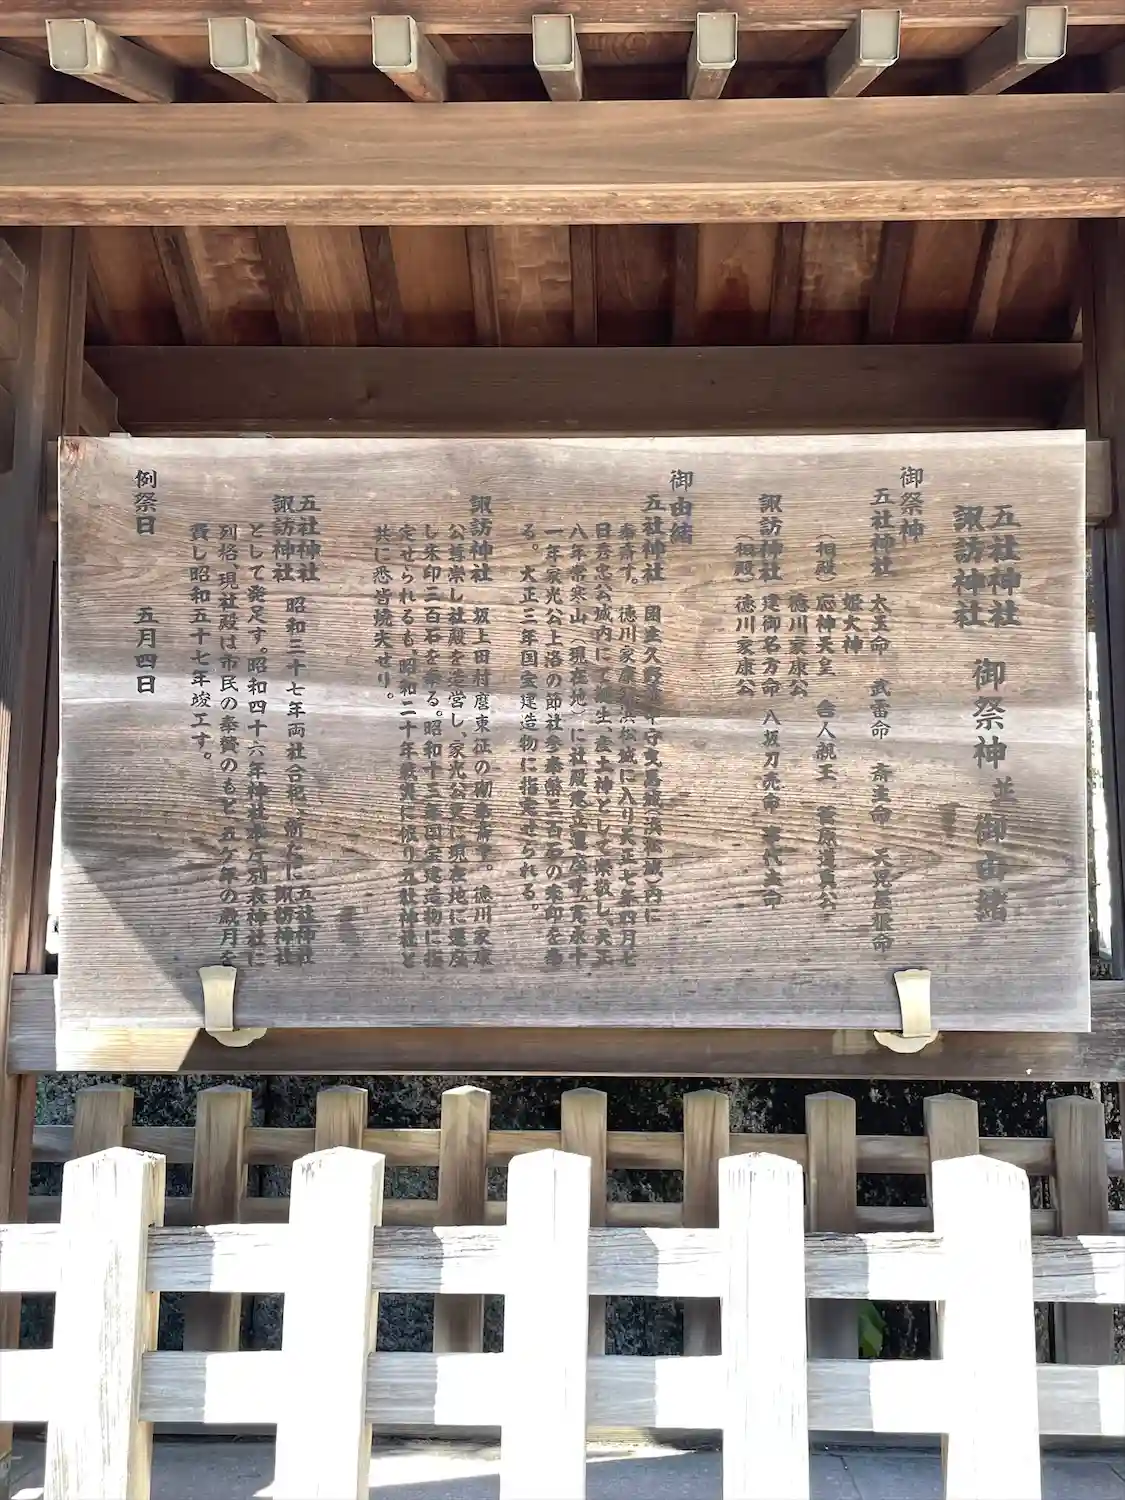 五社神社
諏訪神社 御祭神並御由緒
御祭神
五社神社 太玉命 武雷命 斎主命 天児屋根命
姫大神
(相殿) 応神天皇 舎人親王 菅原道真公
徳川家康公
諏訪神社 建御名方命 八坂刀売命 事代主命
(相殿) 徳川家康公
御由緒
五社神社 国主久野越中守曳馬城(浜松城)内に
奉斎す。徳川家康公浜松城に入り天正七年四月七
日秀忠公城内にて誕生、産土神として崇敬し、天正
八年常寒山(現在地)に社殿建立遷座す。寛永十
一年家光公上洛の節社参奉幣三百石の朱印を奉
る。大正三年国宝建造物に指定せられる。
諏訪神社 坂上田村麿東征の砌奉斎す。徳川家康
公尊崇し社殿を造営し、家光公更に現在地に遷座
し朱印三百石を奉る。昭和十三年国宝建造物に指
定せられるも、昭和二十年戦災に依り五社神社と
共に悉皆焼失せり。
五社神社
諏訪神社 昭和三十七年両社合祀、新たに五社神社
諏訪神社
として発足す。昭和四十六年神社本庁別表神社に
列格、現社殿は市民の奉賛のもと五ヶ年の歳月を
費し昭和五十七年竣工す。
例祭日 五月四日